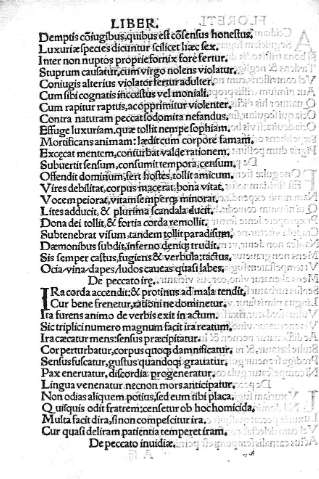 LIBER.
Demptis cõiugibus, quibus est cõsensus honestus,
Luxuriæ species dicuntur scilicet hæc sex.
Inter non nuptos proprie fornix fore fertur,
Stuprum causatur, cum virgo nolens violatur,
Coniugis alterius violator fertur adulter,
Cum sibi cognatis incœstus vel moniali.
Cum rapitur raptus, ac opprimitur violenter,
Contra naturam peccat sodomita nefandus,
Effuge luxuriam, quæ tollit nempe sophiam,
Mortificans animam: lædit cum corpore famam,
Excęcat mentem, conturbat valde rationem,
Subuertit sensum, consumit tempora, censum,
Offendit dominum, fert hostes, tollit amicum,
Vires debilitat, corpus macerat, bona vitat,
Vocem peiorat, vitam semperq; minorat,
Lites adducit, & plurima scandala ducit.
Dona dei tollit, & fortia corda remollit,
Subtenebrat visum, tandem tollit paradisum,
Dæmonibus subdit, inferno deniq; trudit,
Sis semper castus, fugiens & verbula: tactus,
Ocia, vina, dapes, ludos caueas quasi labes,
De peccato irę.
IRa corda accendit: & protinus ad mala tendit,
Cur bene frenetur, rationi ne dominetur,
Ira furens animo de verbis exit in actum.
Sic triplici numero magnum facit ira reatum,
Ira cæcat mens: sensus præcipitatur.
Cor perturbatur, corpus quoq; damnificatur,
Sensus suscatur, gustus quandoq; grauatur,
Pax eneruatur, discordia progeneratur,
Lingua venenatur necnon mors anticipatur,
Non odias aliquem potius, sed eum tibi placa.
Quisquis odit fratrem: censetur ob hoc homicida,
Multa facit dira, si non compescitur ira,
Cur quasi deliram patientia temperet iram,
De peccato inuidiæ.